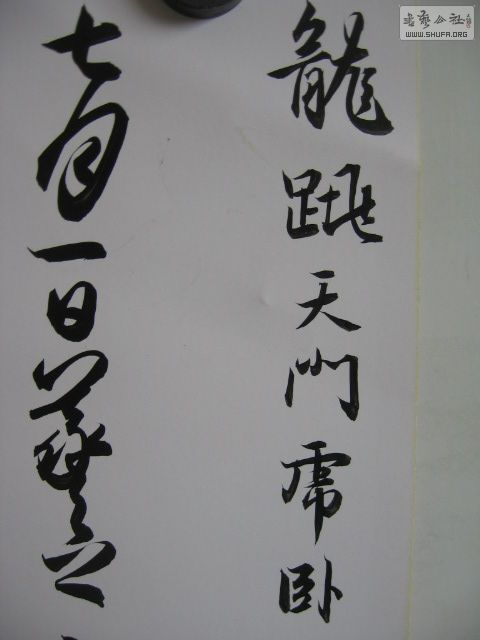 龍跳天門虎卧
七月一日羲之
書藝公社
WWW.SHUFA.ORG